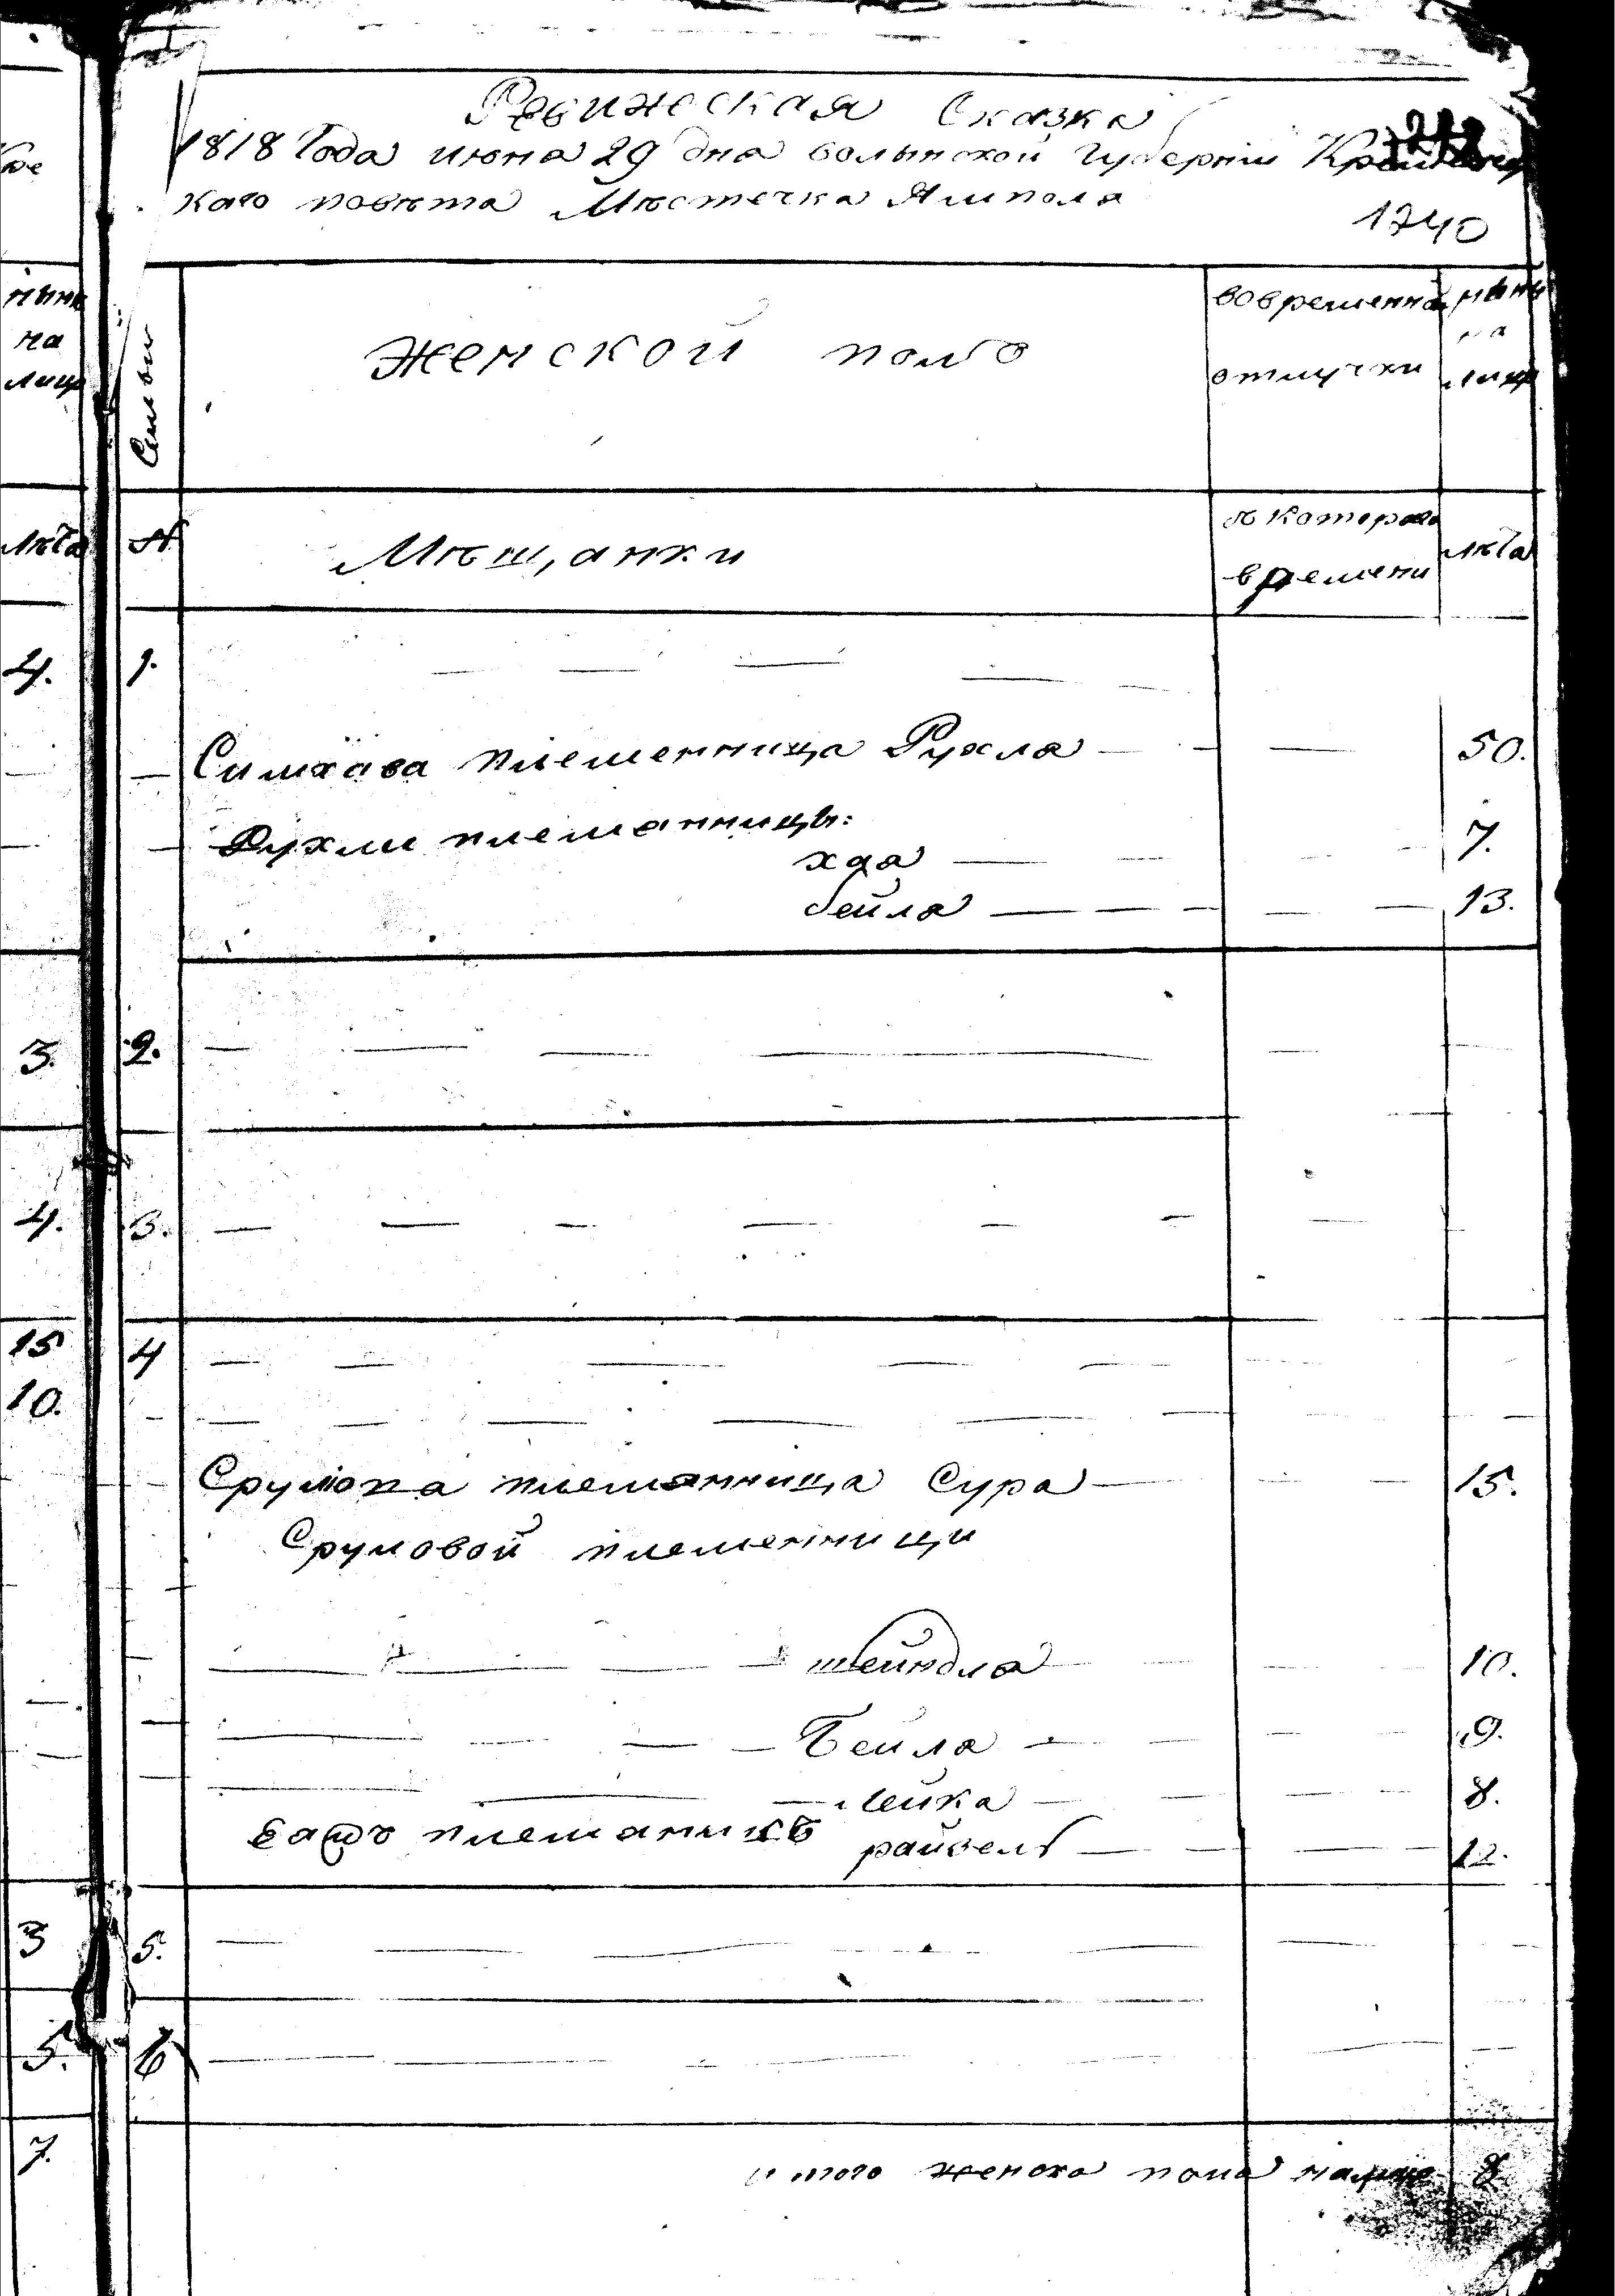 Ревижская Сказка
1818 Года июня 29 дня волынской Губернїи
каго повѣта Мѣстечка Ямпола
1740
нынѣ на лицо
Семьи
Женской полъ
вовременной отлучки
нынѣ на лицо
лѣта
№
Мѣщанки
с котораго времени
лѣта
4. 1.
Симхава племенница Рухла 50.
Рухли племянницы:
хая 7.
бейла 13.
3. 2.
4. 3.
15 4
10.
Срулова племянница Сура 15.
Сруловой племенници
шейндла 10.
Бейла 9.
лейка 8.
племаникъ райзель 12.
3 5.
5. 6
7.
итого женска пола 8